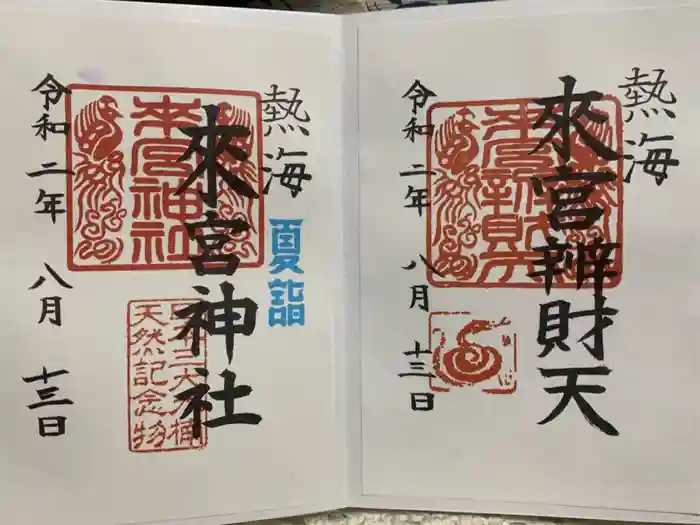 熱海
來宮辨財天
令和二年 八月 十三日
熱海
夏詣
來宮神社
來宮神社
天然記念物
令和二年 八月 十三日